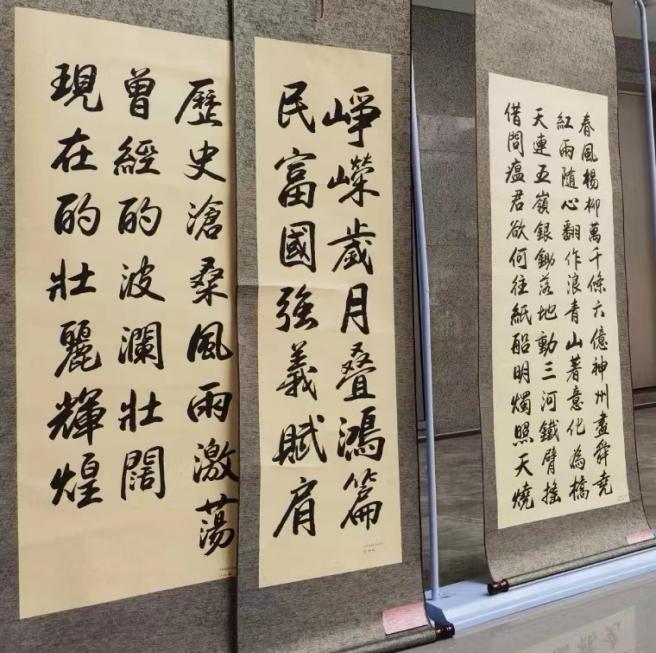 春風楊柳萬千條六億神州盡舜堯
紅雨隨心翻作浪青山著意化為橋
天連五嶺銀鋤落地動三河鐵臂搖
借問瘟君欲何往紙船明燭照天燒
崢嶸歲月叠鴻篇
民富國強義賦肩
歷史滄桑風雨激蕩
曾經的波瀾壯闊
現在的壯麗輝煌